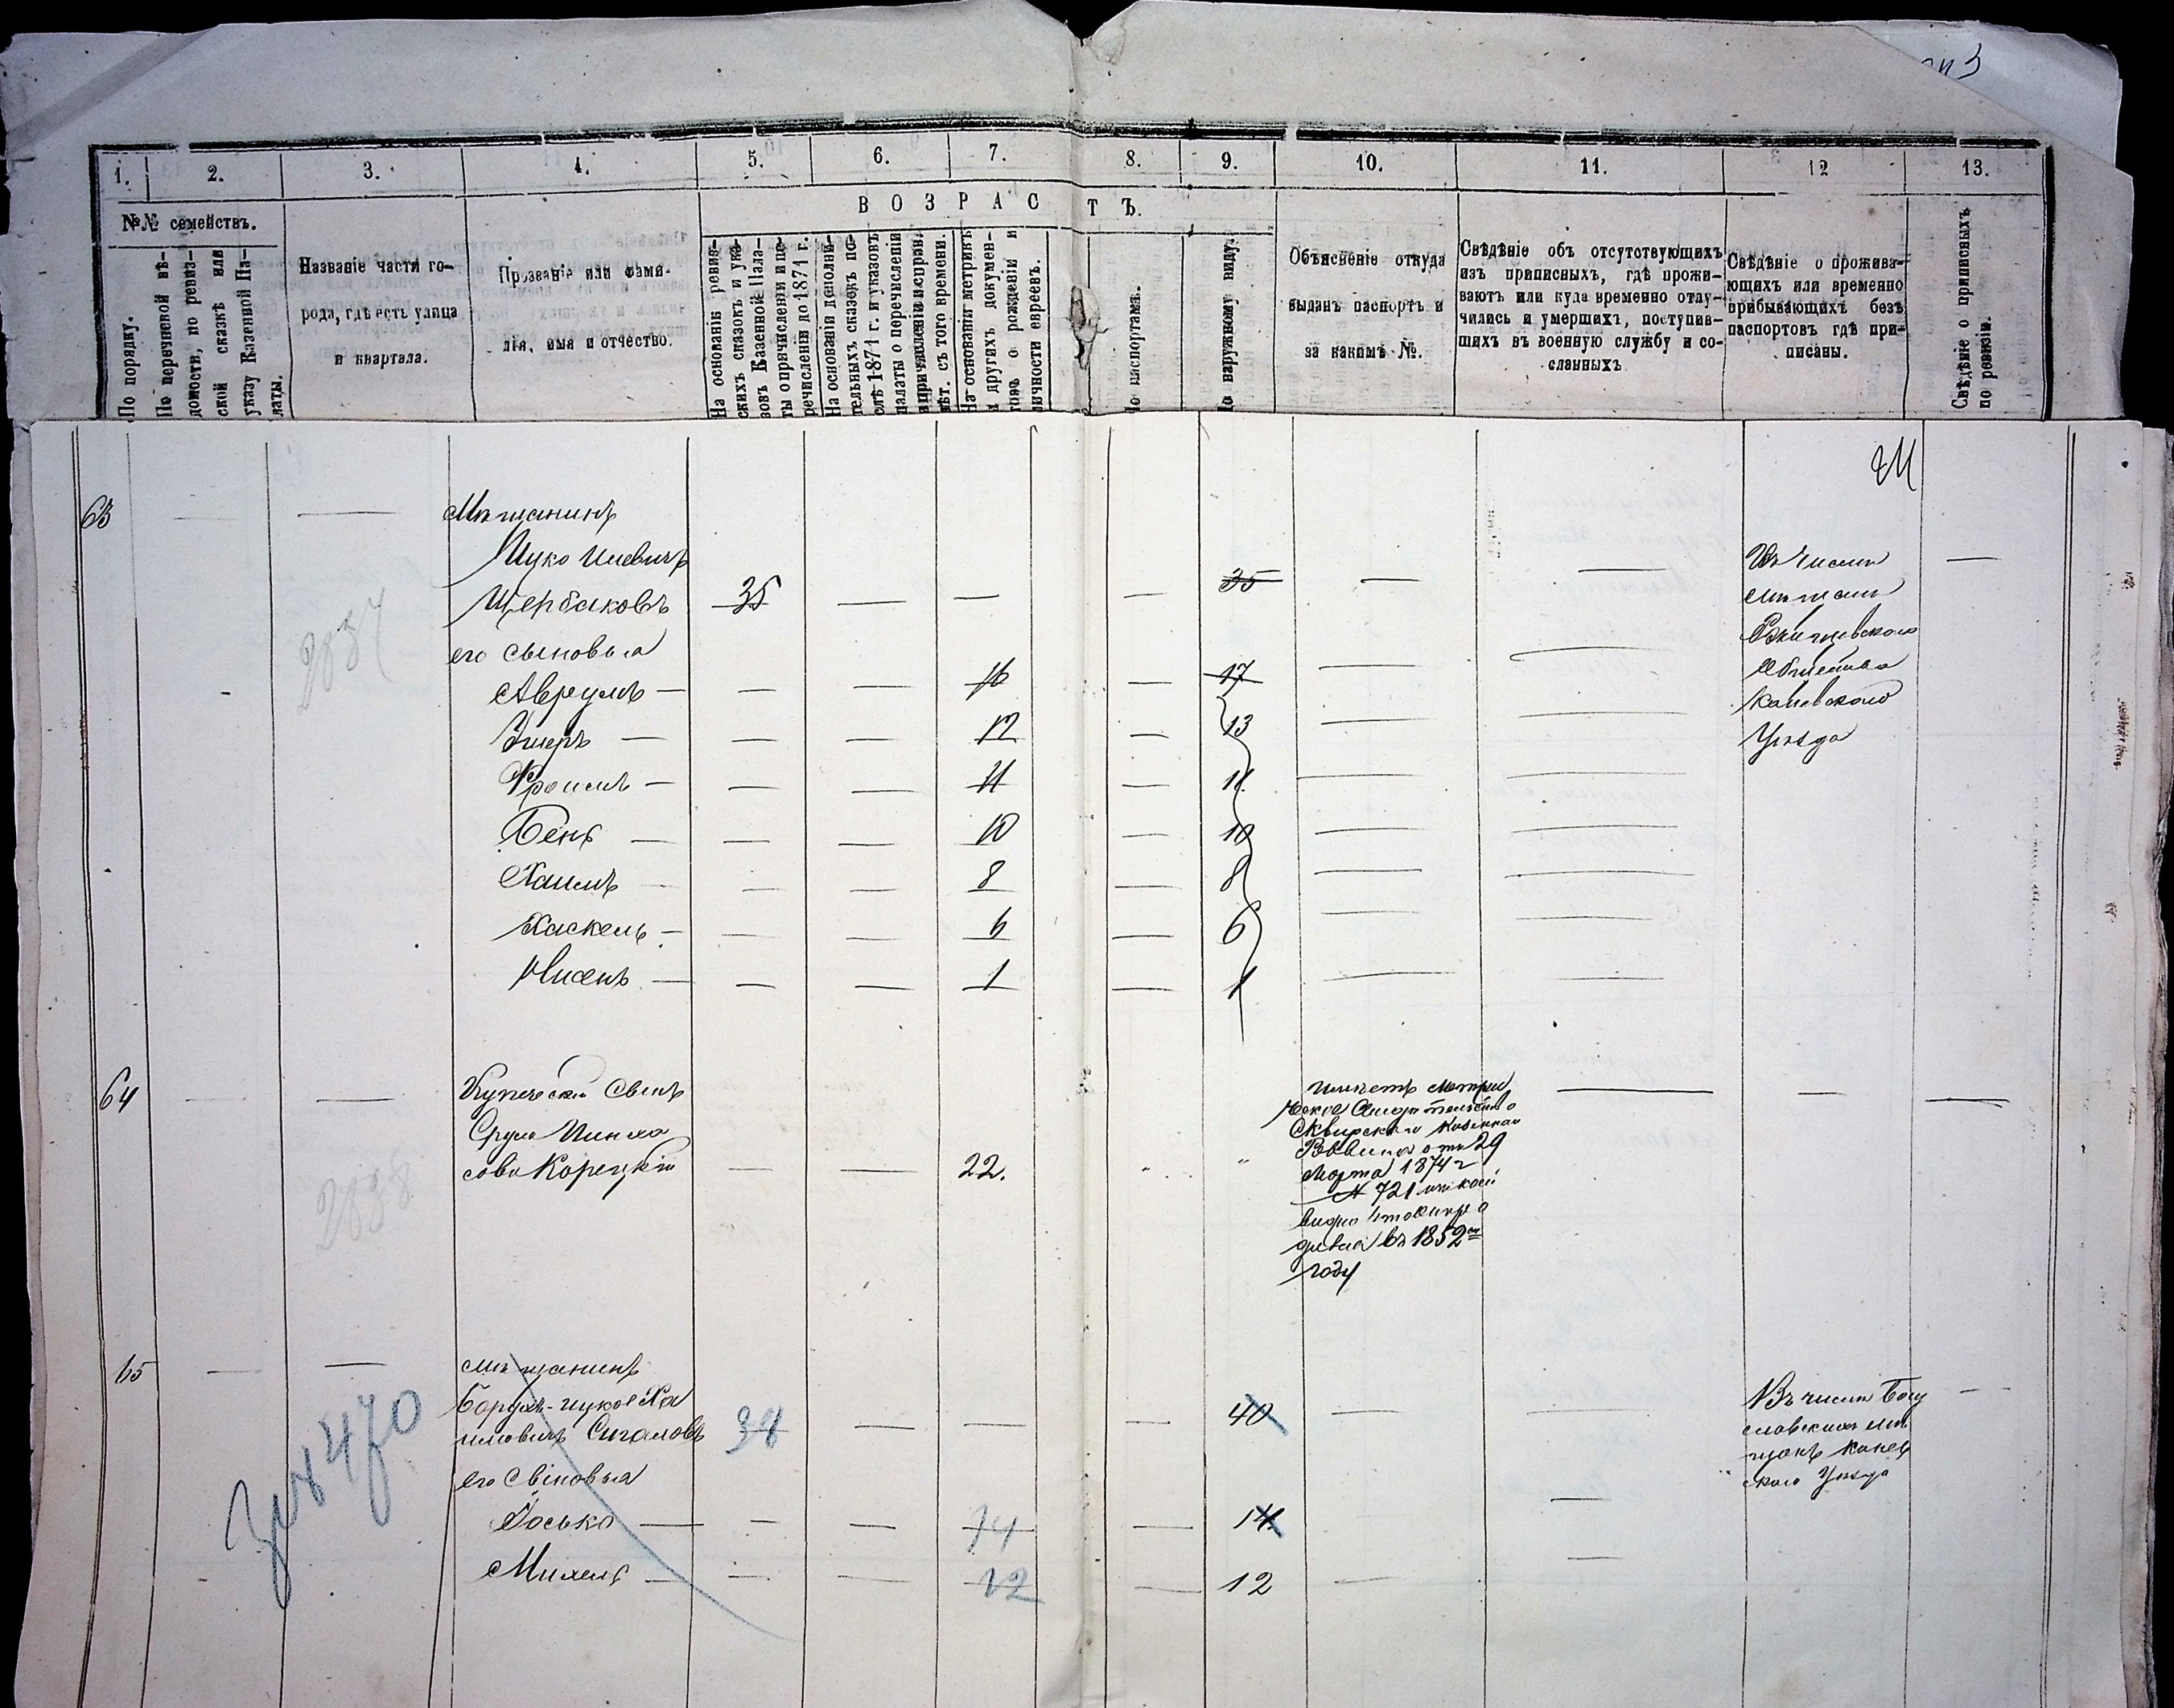 1. 2. 3. 4. 5. 6. 7. 8. 9. 10. 11. 12 13.
№№ семействъ.
ВОЗРАСТЪ.
По порядку.
По перечневой вѣ-
домости, по ревиз-
ской сказкѣ или
указу Казенной Па-
латы.
Названіе части го-
рода, гдѣ есть улица
и квартала.
Прозваніе или фами-
лія, имя и отчество.
На основаніи ревиз-
скихъ сказокъ и ука-
зовъ Казенной Пала-
ты о причисленіи и пе-
речисленіи до 1871 г.
На основаніи дополни-
тельныхъ сказокъ по-
слѣ 1871 г. и указовъ
палаты о перечисленіи
и причисленіи и исправ.
лѣт. съ того времени.
На основаніи метрикъ
и другихъ докумен-
товъ о рожденіи и
личности евреевъ.
По паспортамъ.
По наружному виду.
Объясненіе откуда
выданъ паспортъ и
за какимъ №.
Свѣдѣніе объ отсутствующихъ
изъ приписныхъ, гдѣ прожи-
ваютъ или куда временно отлу-
чились и умершихъ, поступив-
шихъ въ военную службу и со-
сланныхъ
Свѣдѣніе о прожива-
ющихъ или временно
прибывающихъ безъ
паспортовъ гдѣ при-
писаны.
Свѣдѣніе о приписныхъ
по ревизіи.
63 — — Мѣщанинъ
Шуко Иліевичъ
Щербаковъ 35 — — — 35 — —
Въ числѣ —
мѣщанъ
Ржищевскаго
Общества
Каневскаго
Уѣзда
2837
его сыновья
Аврумъ — — — 16 — 17 — —
Ушеръ — — — 12 — 13 — —
Фроимъ — — — 11 — 11 — —
Бенъ — — — 10 — 10 — —
Хаимъ — — — 8 — 8 — —
Хаскель — — — 6 — 6 — —
Нисенъ — — — 1 — 1 — —
64 — — Купеческій Сынъ
Сруль Пинха
совъ Корецкій — — 22. " "
2838
имѣетъ Метри
ческое Свидѣтельство
Сквирскаго Казеннаго
Раввина отъ 29
Марта 1874 г
№ 721 изъ коей
видно что онъ ро
дился въ 1852мъ
году
— — —
65 — — мѣщанинъ
Борухъ-Цуко Ха
имовичъ Сигаловъ 38 — — — 40 — —
Въ числѣ Богу —
славскихъ мѣ
щанъ Канев
скаго Уѣзда
470
его Сыновья
Іосько — — — 14 — 14 —
Михель — — — 12 — 12 — —